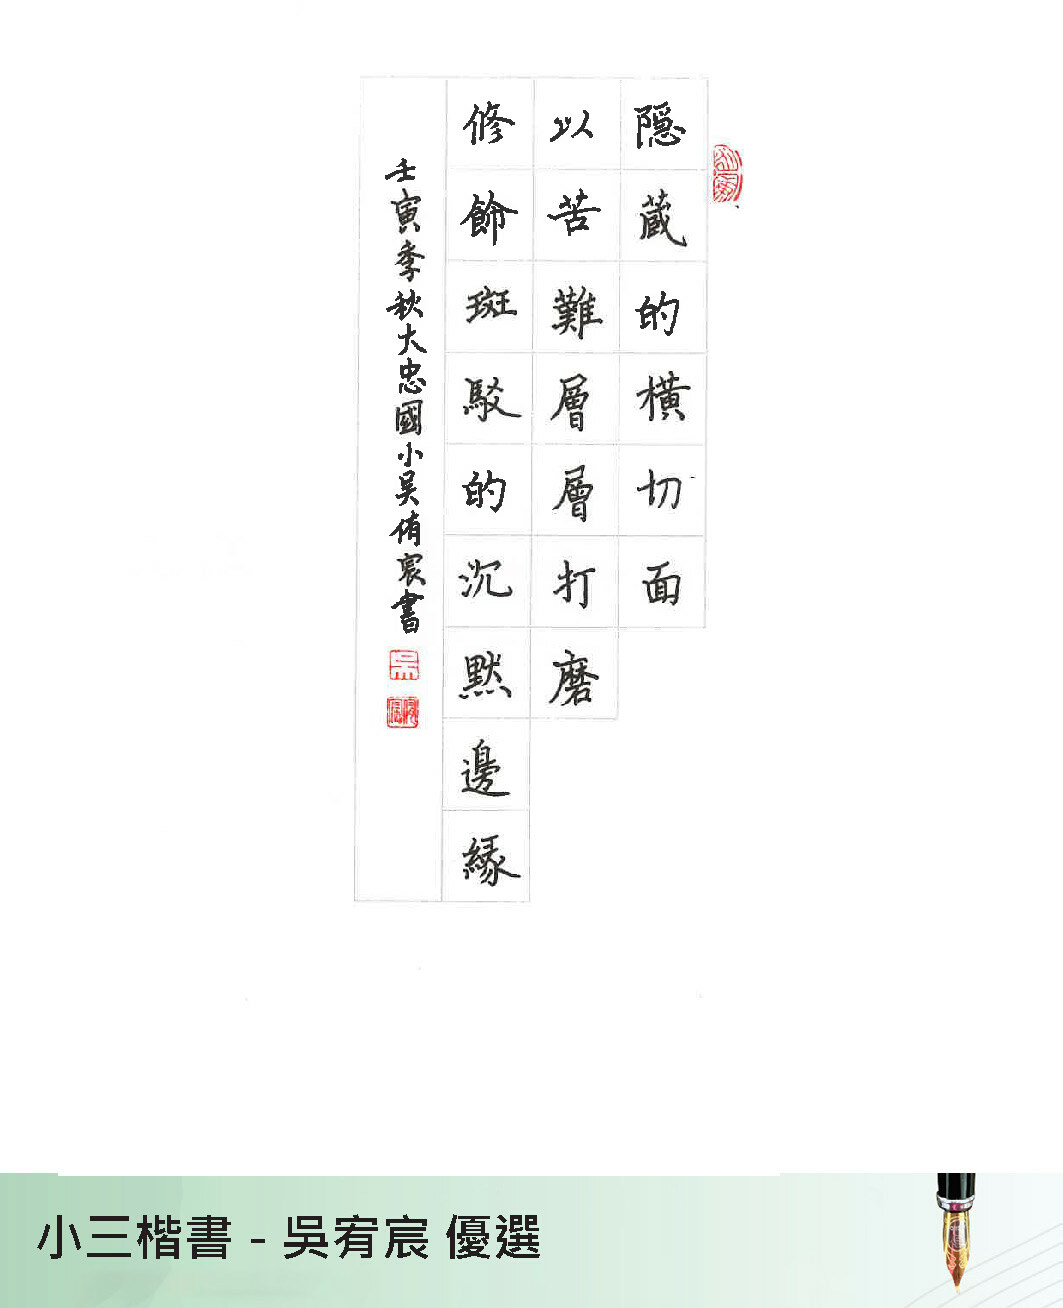 隱藏的橫切面
以苦難層層打磨
修飾斑駁的沉默邊緣
壬寅季秋大忠國小吳侑宸書
小三楷書 - 吳宥宸 優選